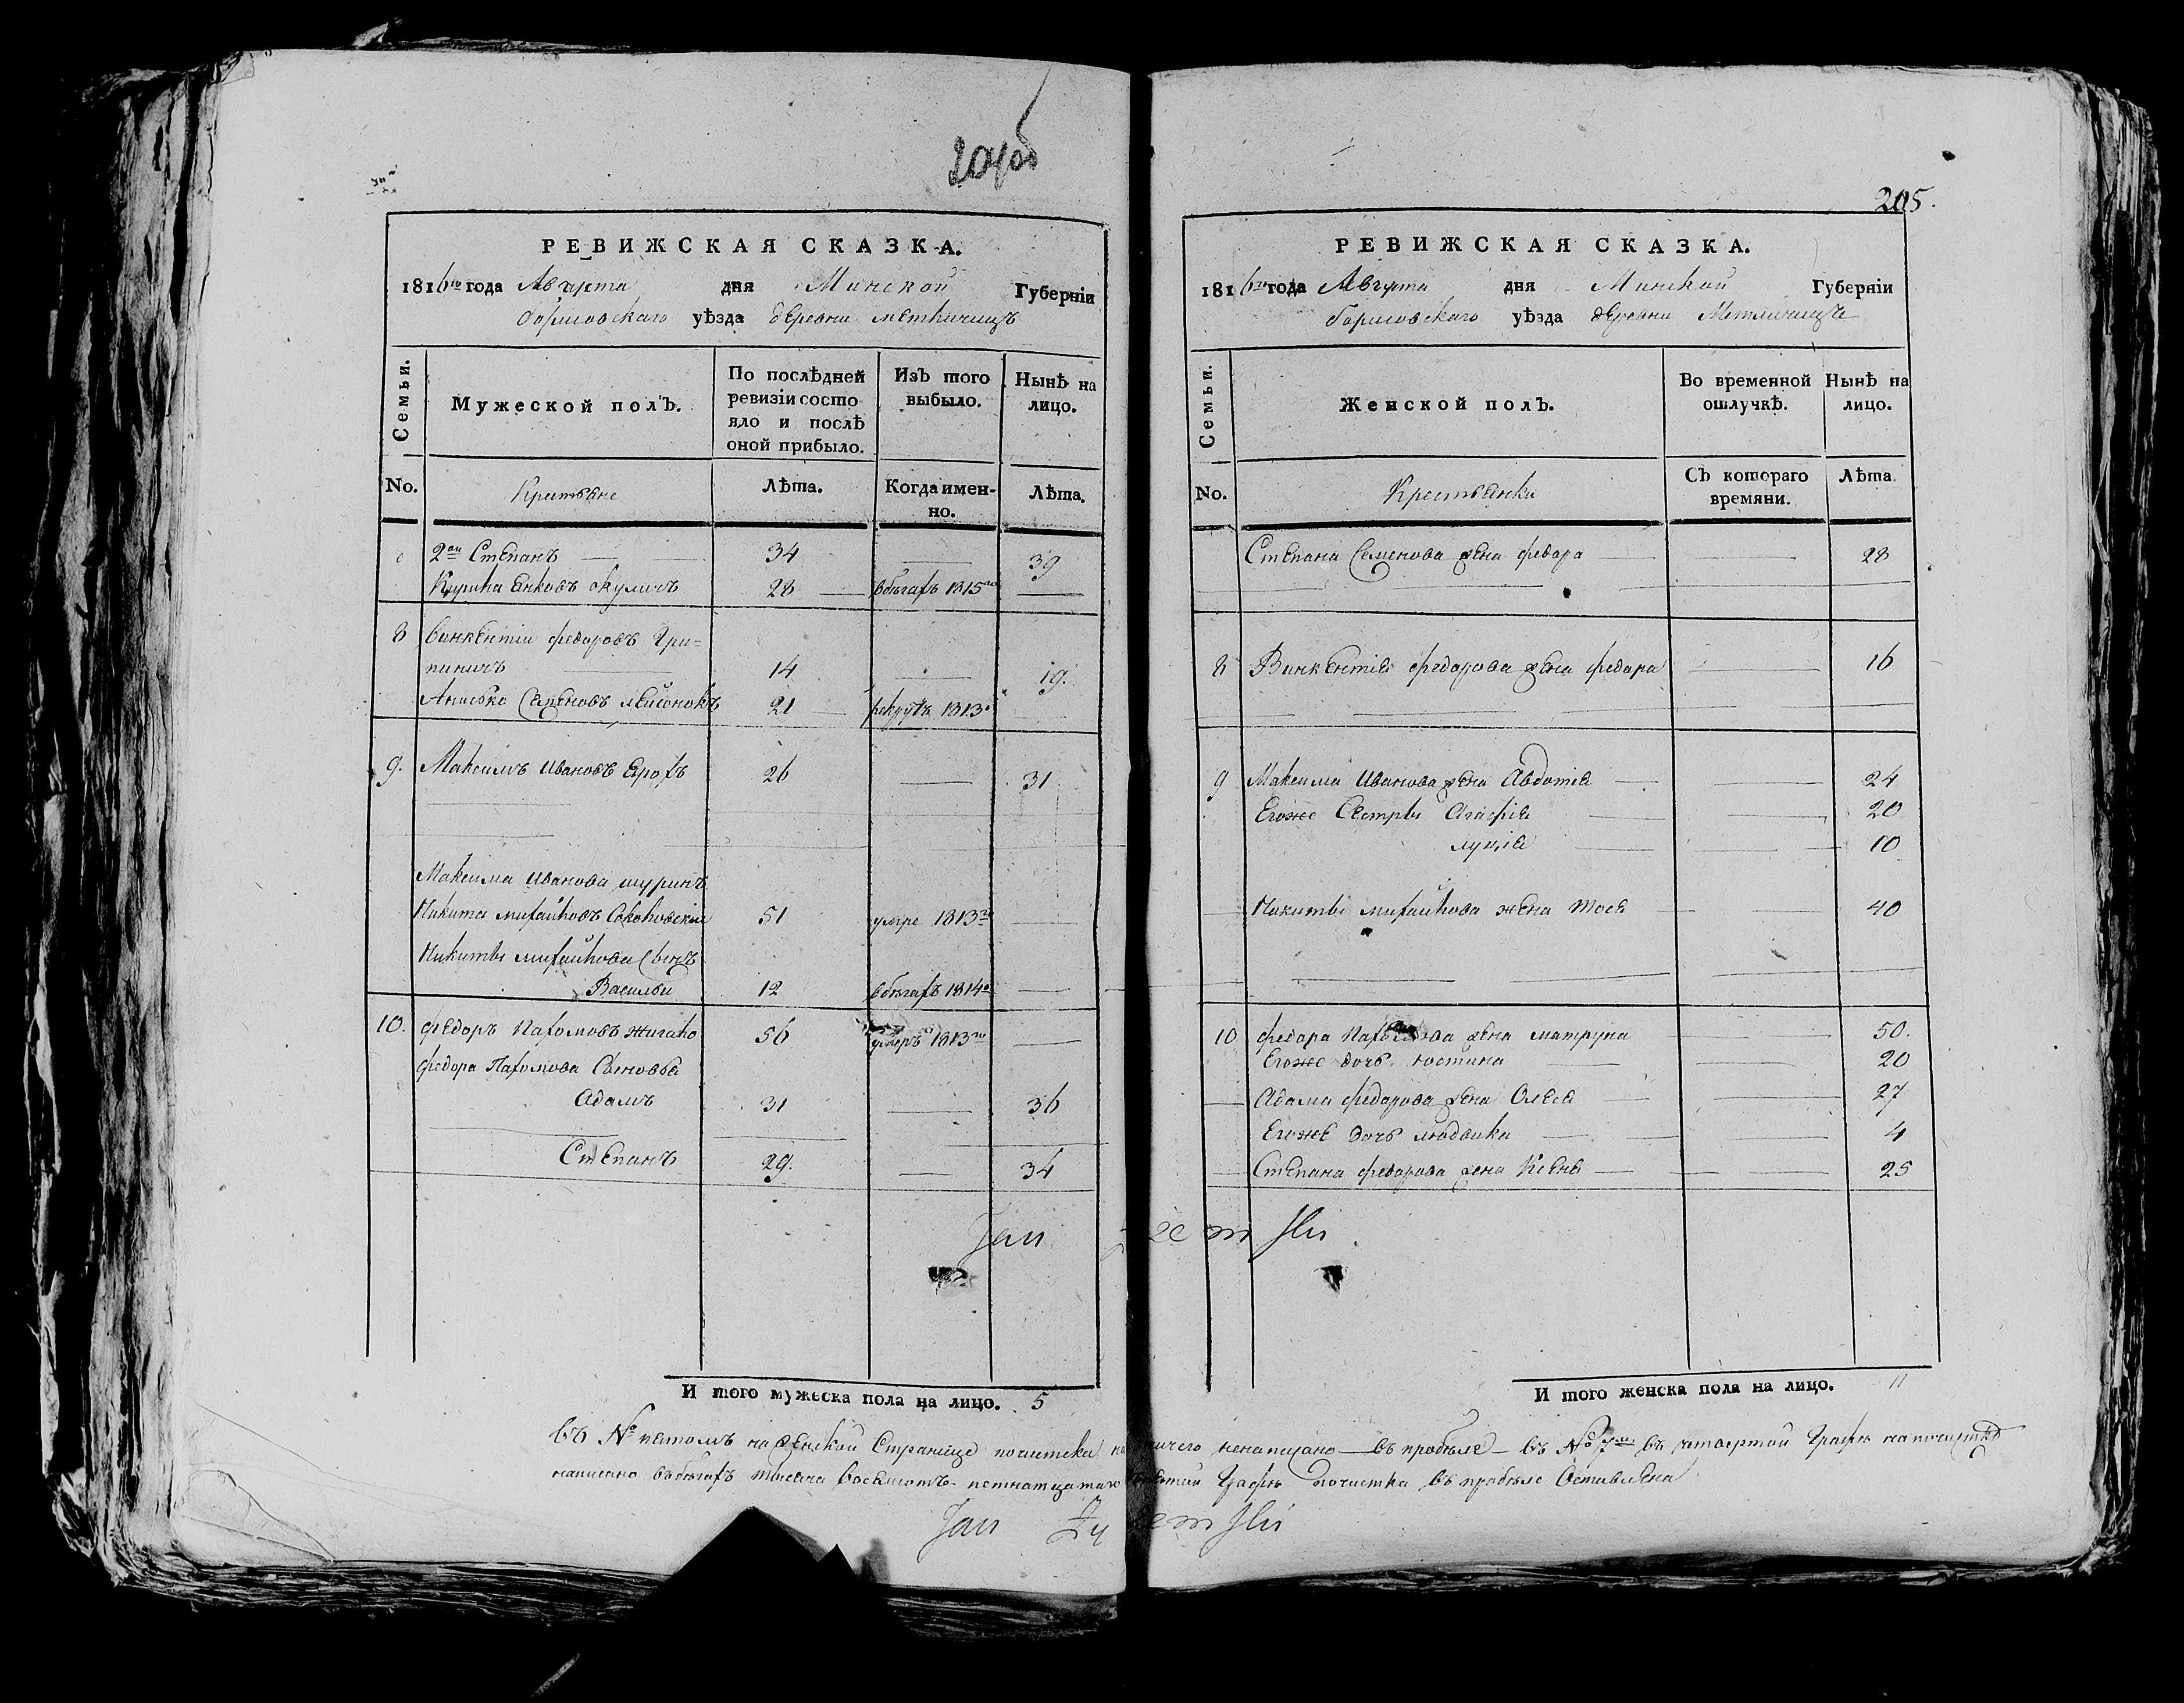 204об
РЕВИЖСКАЯ СКАЗКА.
1816го года Августа дня Минской Губерніи
борисовского уѣзда деревни метличицъ
Семьи.
Мужеской полъ.
По послѣдней ревизіи состояло и послѣ оной прибыло.
Изъ того выбыло.
Нынѣ на лицо.
No.
Крестьяне
Лѣта.
Когда именно.
Лѣта.
2ой Степанъ 34 39
Енковъ окуличъ 28 вбѣгахъ 1815го
8 Винкентіи федоровъ Гри=
пиничъ 14 19.
Анисько Семеновъ 21 рекрутъ 1813
9. Максимъ Ивановъ Ерохъ 26 31
Максима Иванова шуринъ
Никита михайловъ Соколовскии 51 умре 1813го
Никиты михайлова Сынъ
Василеи 12 вбѣгахъ 1814го
10. федоръ Пахомовъ жигало 56 умеръ 1813го
федора Пахомова Сыновья
Адамъ 31 36
Степанъ 29. 34
Jan
И того мужеска пола на лицо. 5
205.
РЕВИЖСКАЯ СКАЗКА.
1816го года Августа дня Минской Губерніи
борисовского уѣзда деревни Метличицъ
Семьи.
Женской полъ.
Во временной отлучкѣ.
Нынѣ на лицо.
No.
Крестьянки
Съ котораго времяни.
Лѣта.
Степана Семенова жена федора 28
8 Винкентія федорова жена федора 16
9 Максима Иванова жена Авдотія 24
Егоже Сестры Агафія 20
луція 10
Никиты михайлова жена Тося 40
10 федора Пахомова жена матруна 50.
Егоже дочь юстина 20
Адама федорова жена Олеся 27
Егоже дочь людвика 4
Степана федорова жена Ксеня 25
И того женска пола на лицо. 11
въ № пятомъ на женской Странице почистки ничего ненаписано — въ пробѣле — въ № 7м въ четвертой Графѣ на почистке
написано вбѣгахъ тысяча восемсотъ петнатцатаго Графѣ почистка въ пробѣле Оставлена
Jan